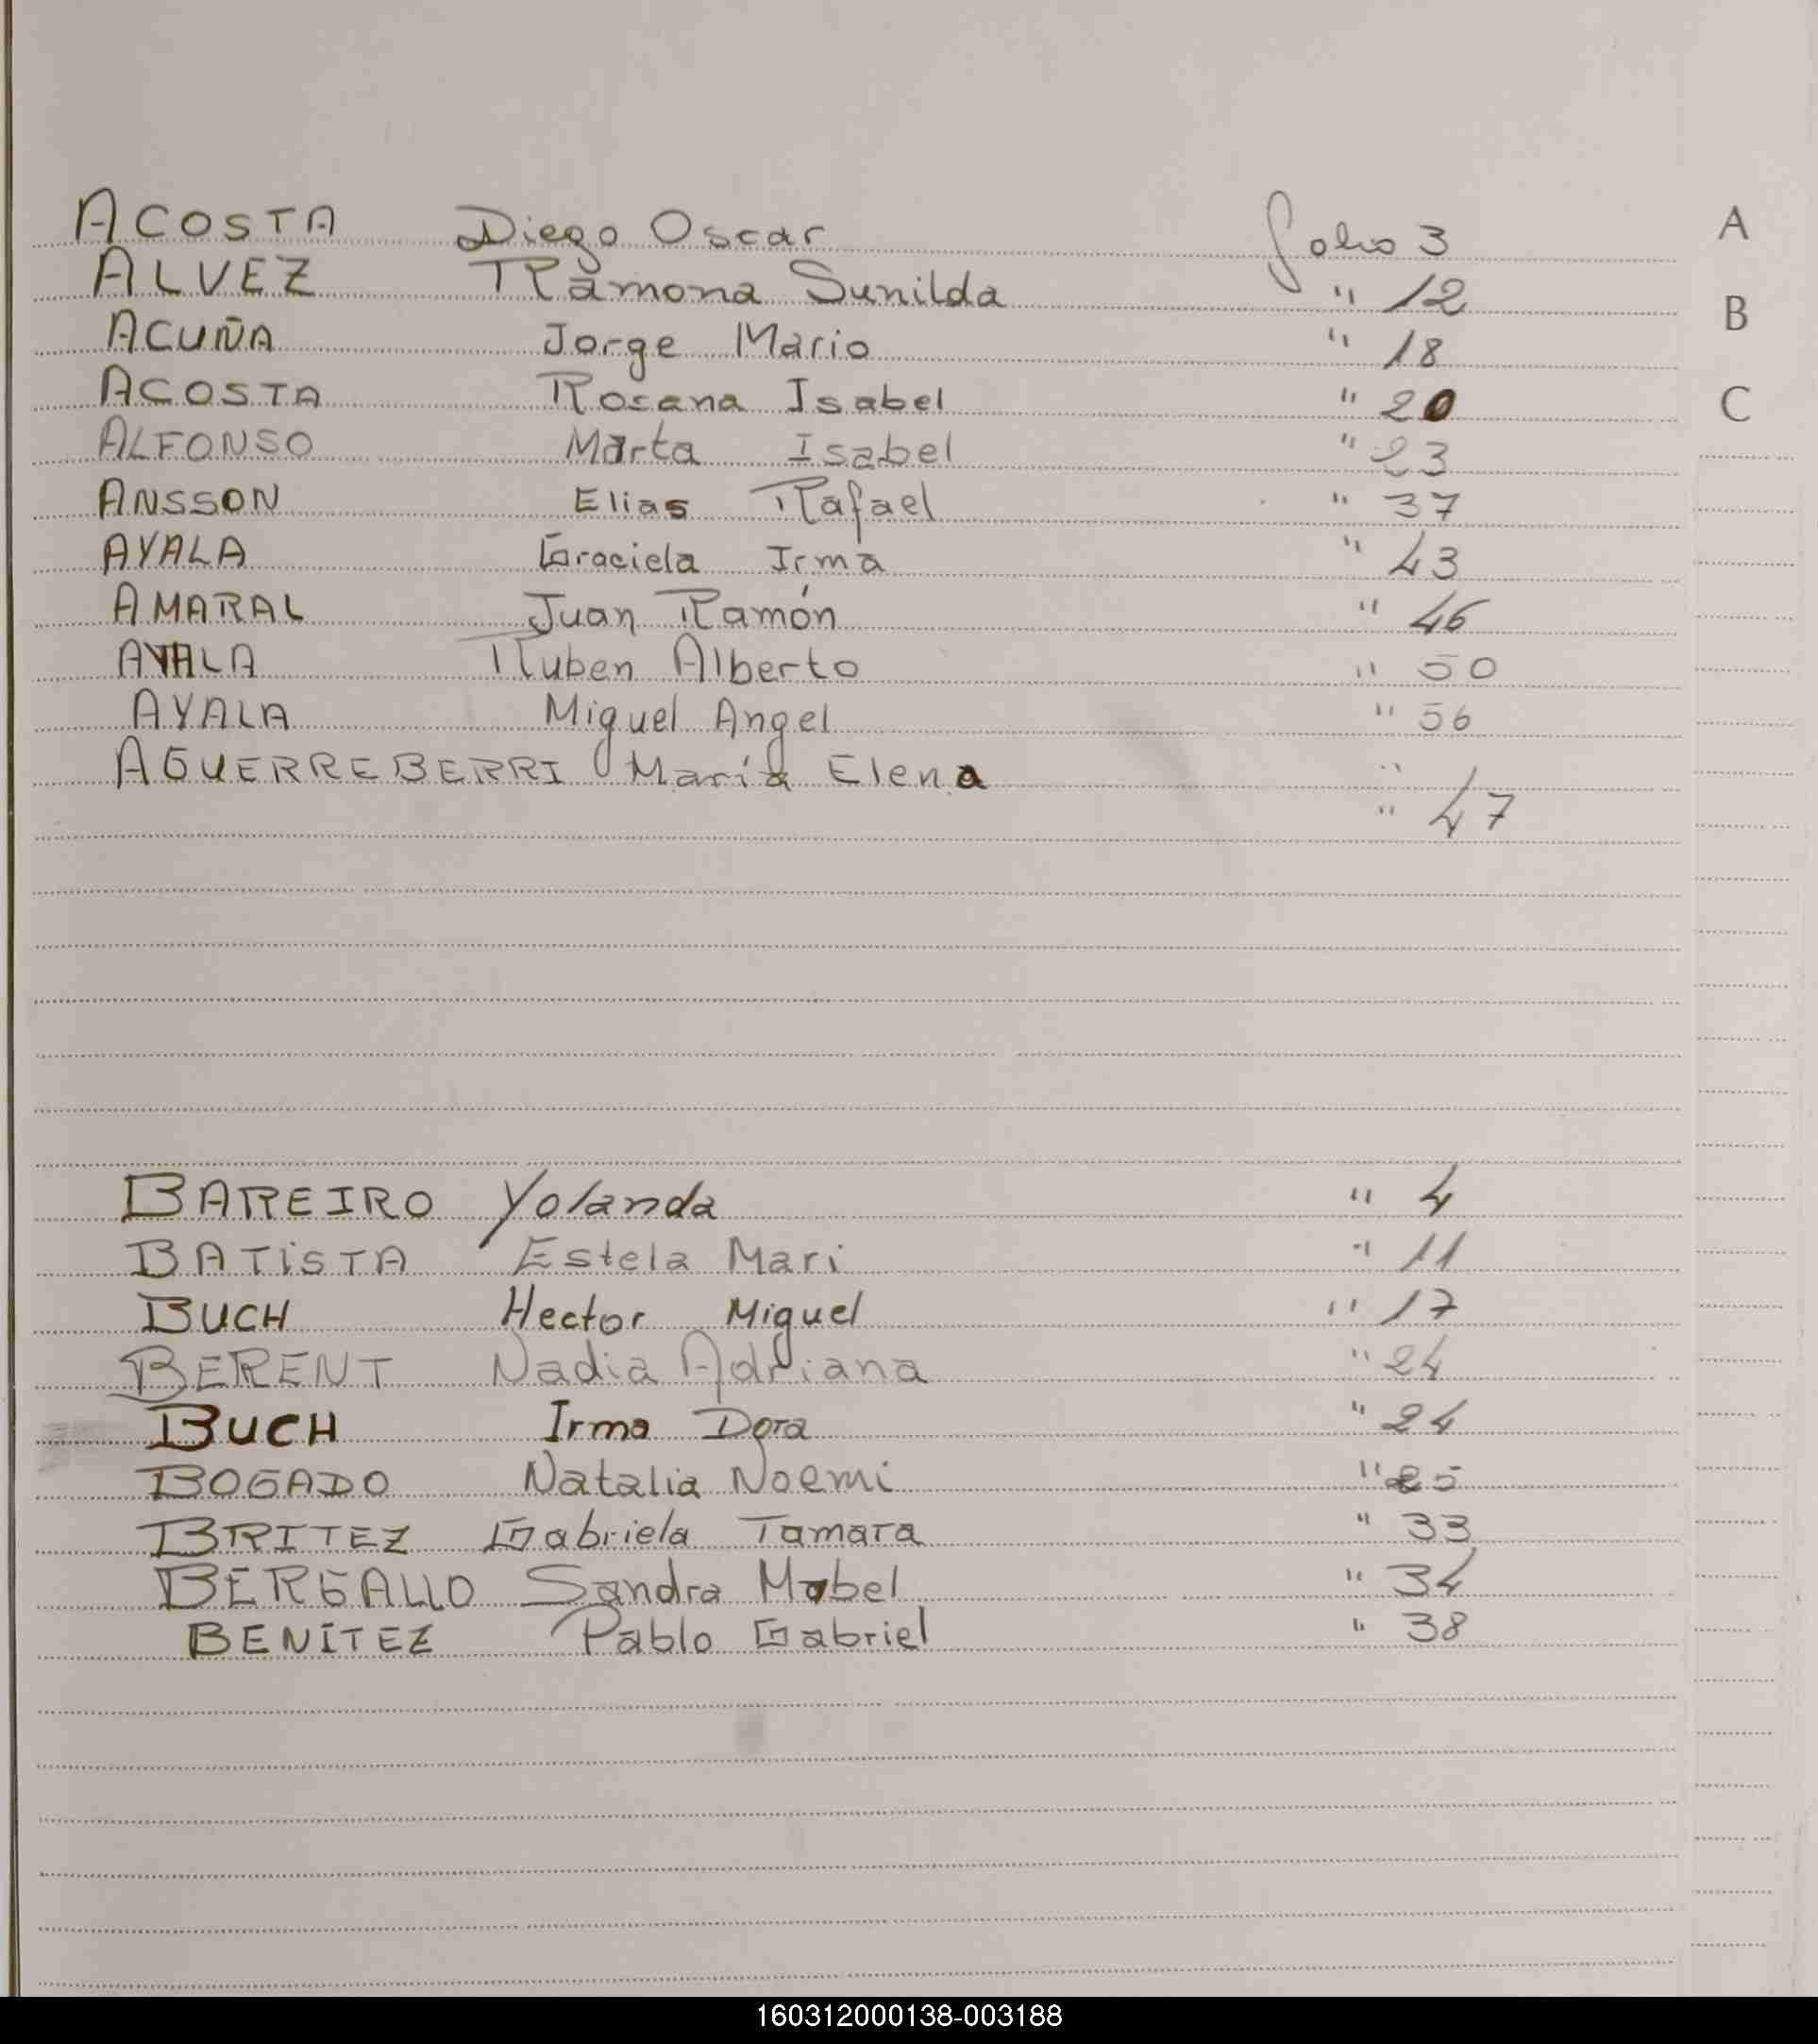 ACOSTA Diego Oscar folio 3 A
ALVEZ Ramona Sunilda " 12 B
ACUÑA Jorge Mario " 18
ACOSTA Rosana Isabel " 20 C
ALFONSO Marta Isabel " 23
ANSSON Elias Rafael " 37
AYALA Graciela Irma " 43
AMARAL Juan Ramón " 46
AYALA Ruben Alberto " 50
AYALA Miguel Angel " 56
AGUERREBERRI María Elena "
" 47
BAREIRO Yolanda " 4
BATiSTA Estela Mari " 11
BUCH Hector Miguel " 17
BERENT Nadia Adriana " 24
BUCH Irma Dora " 24
BOGADO Natalia Noemi " 25
BRITEZ Gabriela Tamara " 33
BERGALLO Sandra Mabel " 34
BENÍTEZ Pablo Gabriel " 38
160312000138-003188